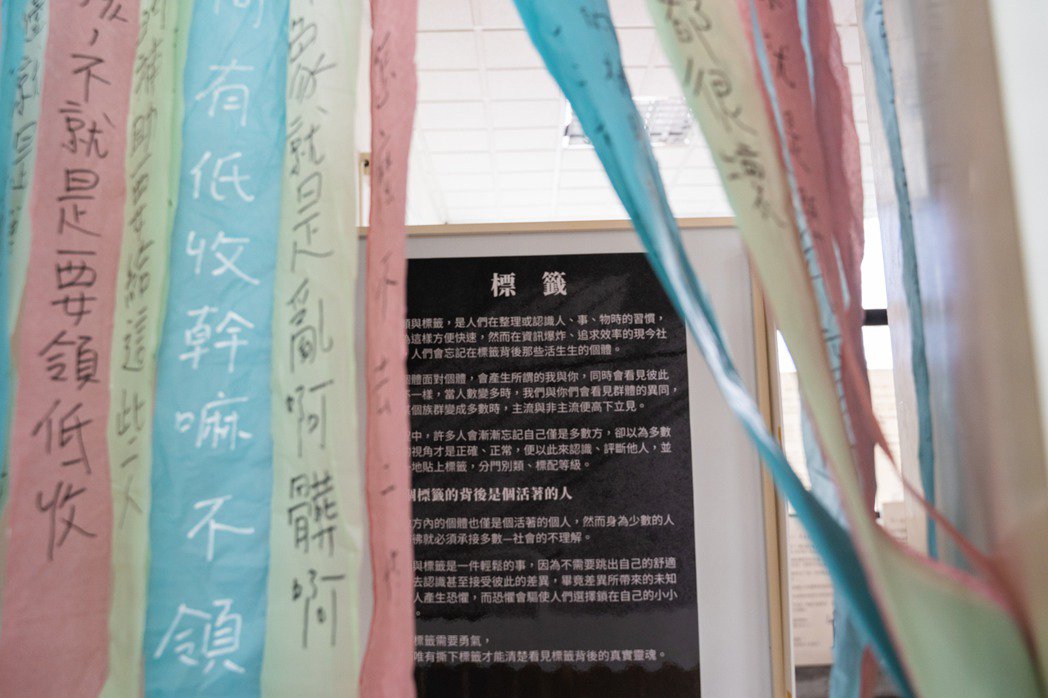 ，不就是要領低收
補助要給這些人
有低收幹嘛不領
象、就是亂啊髒啊
都很
標籤
與標籤，是人們在整理或認識人、事、物時的習慣，
這樣方便快速，然而在資訊爆炸、追求效率的現今社
人們會忘記在標籤背後那些活生生的個體。
體面對個體，會產生所謂的我與你，同時會看見彼此
不一樣，當人數變多時，我們與你們會看見群體的異同，
某個族群變成多數時，主流與非主流便高下立見。
中，許多人會漸漸忘記自己僅是多數方，卻以為多數
視角才是正確、正常，便以此來認識、評斷他人，並
地貼上標籤，分門別類、標配等級。
標籤的背後是個活著的人
方內的個體也僅是個活著的個人，然而身為少數的人
佛就必須承接多數—社會的不理解。
與標籤是一件輕鬆的事，因為不需要跳出自己的舒適
去認識甚至接受彼此的差異，畢竟差異所帶來的未知
人產生恐懼，而恐懼會驅使人們選擇鎖在自己的小小
。
標籤需要勇氣，
唯有撕下標籤才能清楚看見標籤背後的真實靈魂。